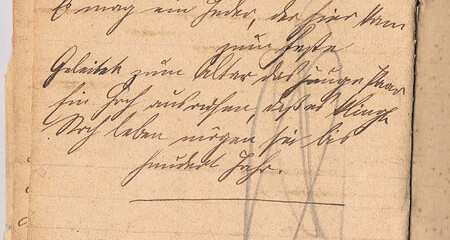 Es mag ein Jeder, der hier kam
zum Feste
Geleitet zum Altar das junge Paar
Ein Hoch ausrufen, daß es klinge
Hoch leben mögen sie bis
hundert Jahr.